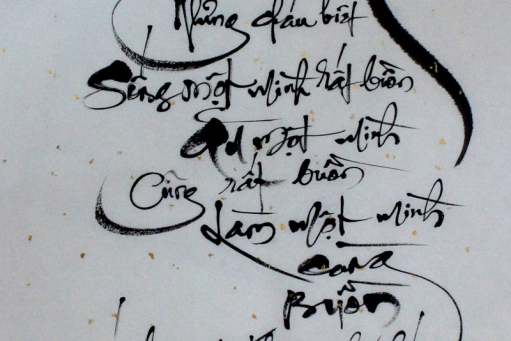 Nhưng đâu biết
Sống một mình rất buồn
Ăn một mình
Cũng rất buồn
Làm một mình
càng
Buồn